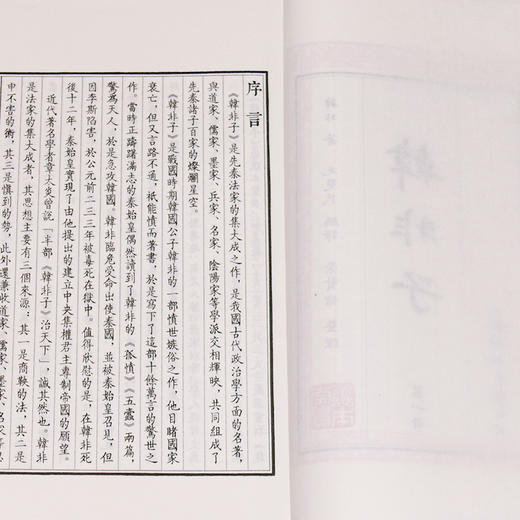 序言
《韓非子》是先秦法家的集大成之作，是我國古代政治學方面的名著，
與道家、儒家、墨家、兵家、名家、陰陽家等學派交相輝映，共同組成了
先秦諸子百家的燦爛星空。
《韓非子》是戰國時期韓國公子韓非的一部憤世嫉俗之作，他目睹國家
衰亡，但又言路不通，祇能憤而著書，於是寫下了這部十餘萬言的驚世之
作。當時正躊躇滿志的秦始皇偶然讀到了韓非的《孤憤》《五蠹》兩篇，
驚為天人，於是急攻韓國，韓非臨危受命出使秦國，並被秦始皇召見，但
因李斯陷害，於公元前二三三年被毒死在獄中。值得欣慰的是，在韓非死
後十二年，秦始皇實現了由他提出的建立中央集權君主專制帝國的願望。
近代著名學者章太炎曾說「半部《韓非子》治天下」，誠其然也。韓非
是法家的集大成者，其思想主要有三個來源：其一是商鞅的法，其二是
申不害的術，其三是慎到的勢，此外還兼收道家、儒家、墨家、名家等思
韓非子